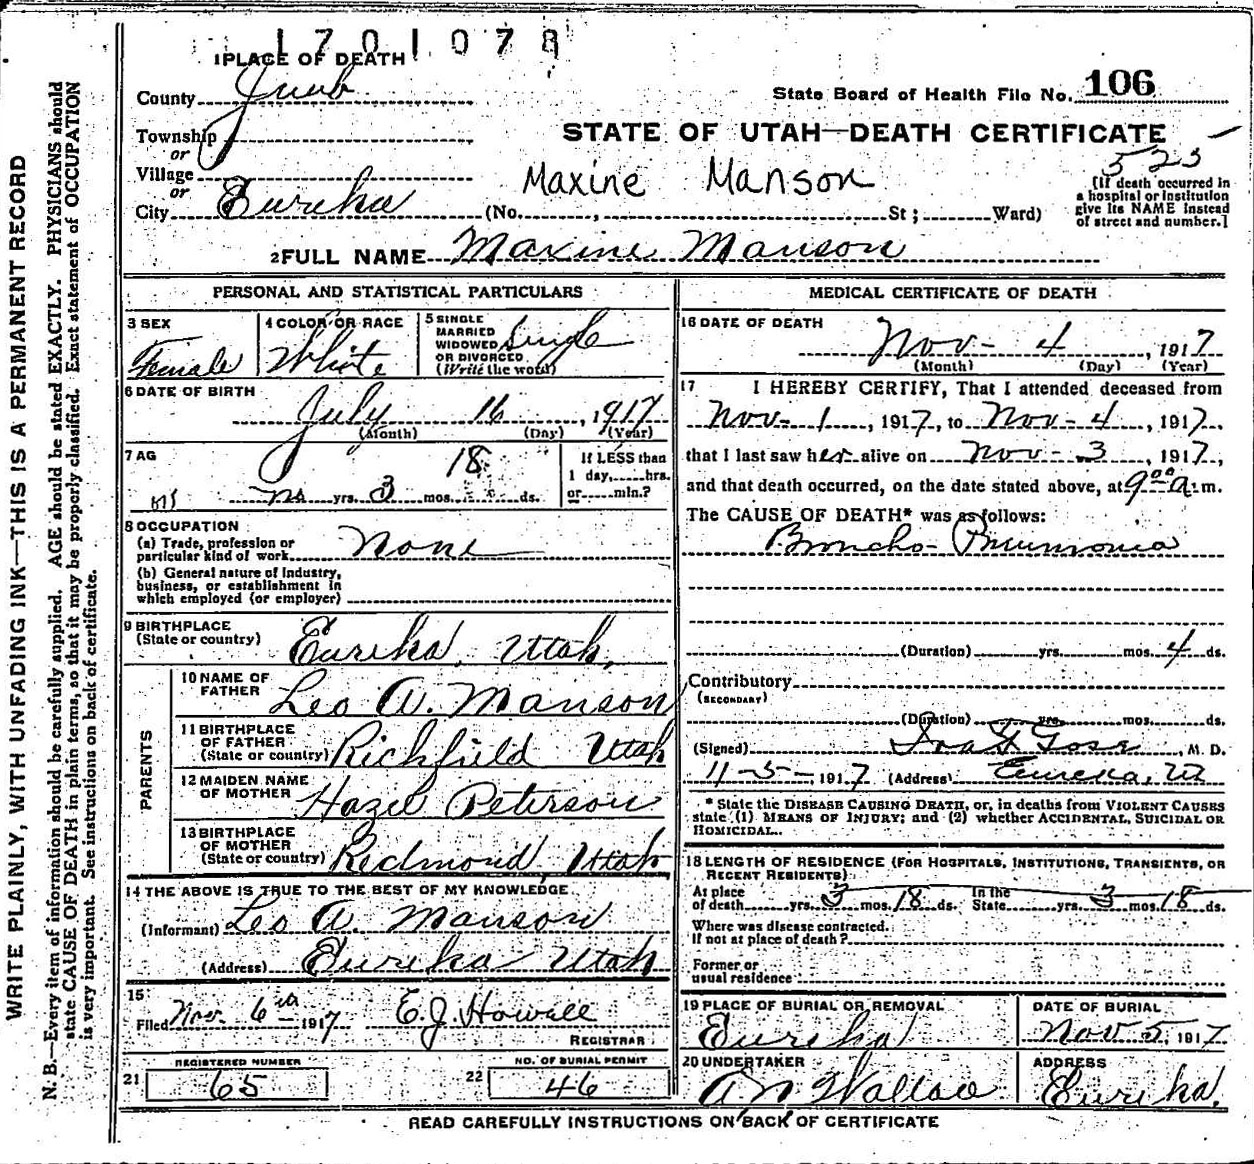 1701078
1 PLACE OF DEATH
County Juab
State Board of Health File No. 106
Township
or
STATE OF UTAH—DEATH CERTIFICATE
525
Village
or
City Eureka
Maxine Manson
(No. , St ; Ward)
[If death occurred in
a hospital or institution
give its NAME instead
of street and number.]
2 FULL NAME Maxine Manson
PERSONAL AND STATISTICAL PARTICULARS
3 SEX
Female
4 COLOR OR RACE
White
5 SINGLE
MARRIED
WIDOWED
OR DIVORCED
(Write the word)
Single
6 DATE OF BIRTH
July 16, 1917
(Month) (Day) (Year)
7 AG
no yrs. 3 mos. 18 ds.
If LESS than
1 day, hrs.
or min.?
8 OCCUPATION
(a) Trade, profession or
particular kind of work None
(b) General nature of Industry,
business, or establishment in
which employed (or employer)
9 BIRTHPLACE
(State or country) Eureka, Utah,
PARENTS
10 NAME OF
FATHER Leo A. Manson
11 BIRTHPLACE
OF FATHER
(State or country) Richfield Utah
12 MAIDEN NAME
OF MOTHER Hazel Peterson
13 BIRTHPLACE
OF MOTHER
(State or country) Redmond, Utah
14 THE ABOVE IS TRUE TO THE BEST OF MY KNOWLEDGE
(Informant) Leo A. Manson
(Address) Eureka Utah
15
Filed Nov. 6th 1917 E. J. Howell
REGISTRAR
REGISTERED NUMBER
21 65
NO. OF BURIAL PERMIT
22 46
MEDICAL CERTIFICATE OF DEATH
16 DATE OF DEATH
Nov- 4, 1917
(Month) (Day) (Year)
17 I HEREBY CERTIFY, That I attended deceased from
Nov- 1, 1917, to Nov- 4, 1917,
that I last saw her alive on Nov- 3, 1917,
and that death occurred, on the date stated above, at 9 00 a. m.
The CAUSE OF DEATH* was as follows:
Broncho- Pneumonia
(Duration) yrs. mos. 4 ds.
Contributory
(SECONDARY)
(Duration) yrs. mos. ds.
(Signed) , M. D.
11-5-1917 (Address) Eureka, Ut
* State the DISEASE CAUSING DEATH, or, in deaths from VIOLENT CAUSES
state (1) MEANS OF INJURY; and (2) whether ACCIDENTAL, SUICIDAL OR
HOMICIDAL.
18 LENGTH OF RESIDENCE (FOR HOSPITALS, INSTITUTIONS, TRANSIENTS, OR
RECENT RESIDENTS)
At place
of death yrs. 3 mos. 18 ds.
In the
State yrs. 3 mos. 18 ds.
Where was disease contracted.
If not at place of death?
Former or
usual residence
19 PLACE OF BURIAL OR REMOVAL
Eureka
DATE OF BURIAL
Nov 5, 1917
20 UNDERTAKER
A N Wallace
ADDRESS
Eureka.
READ CAREFULLY INSTRUCTIONS ON BACK OF CERTIFICATE
WRITE PLAINLY, WITH UNFADING INK—THIS IS A PERMANENT RECORD
N. B.—Every item of information should be carefully supplied. AGE should be stated EXACTLY. PHYSICIANS should
state CAUSE OF DEATH in plain terms, so that it may be properly classified. Exact statement of OCCUPATION
is very important. See instructions on back of certificate.